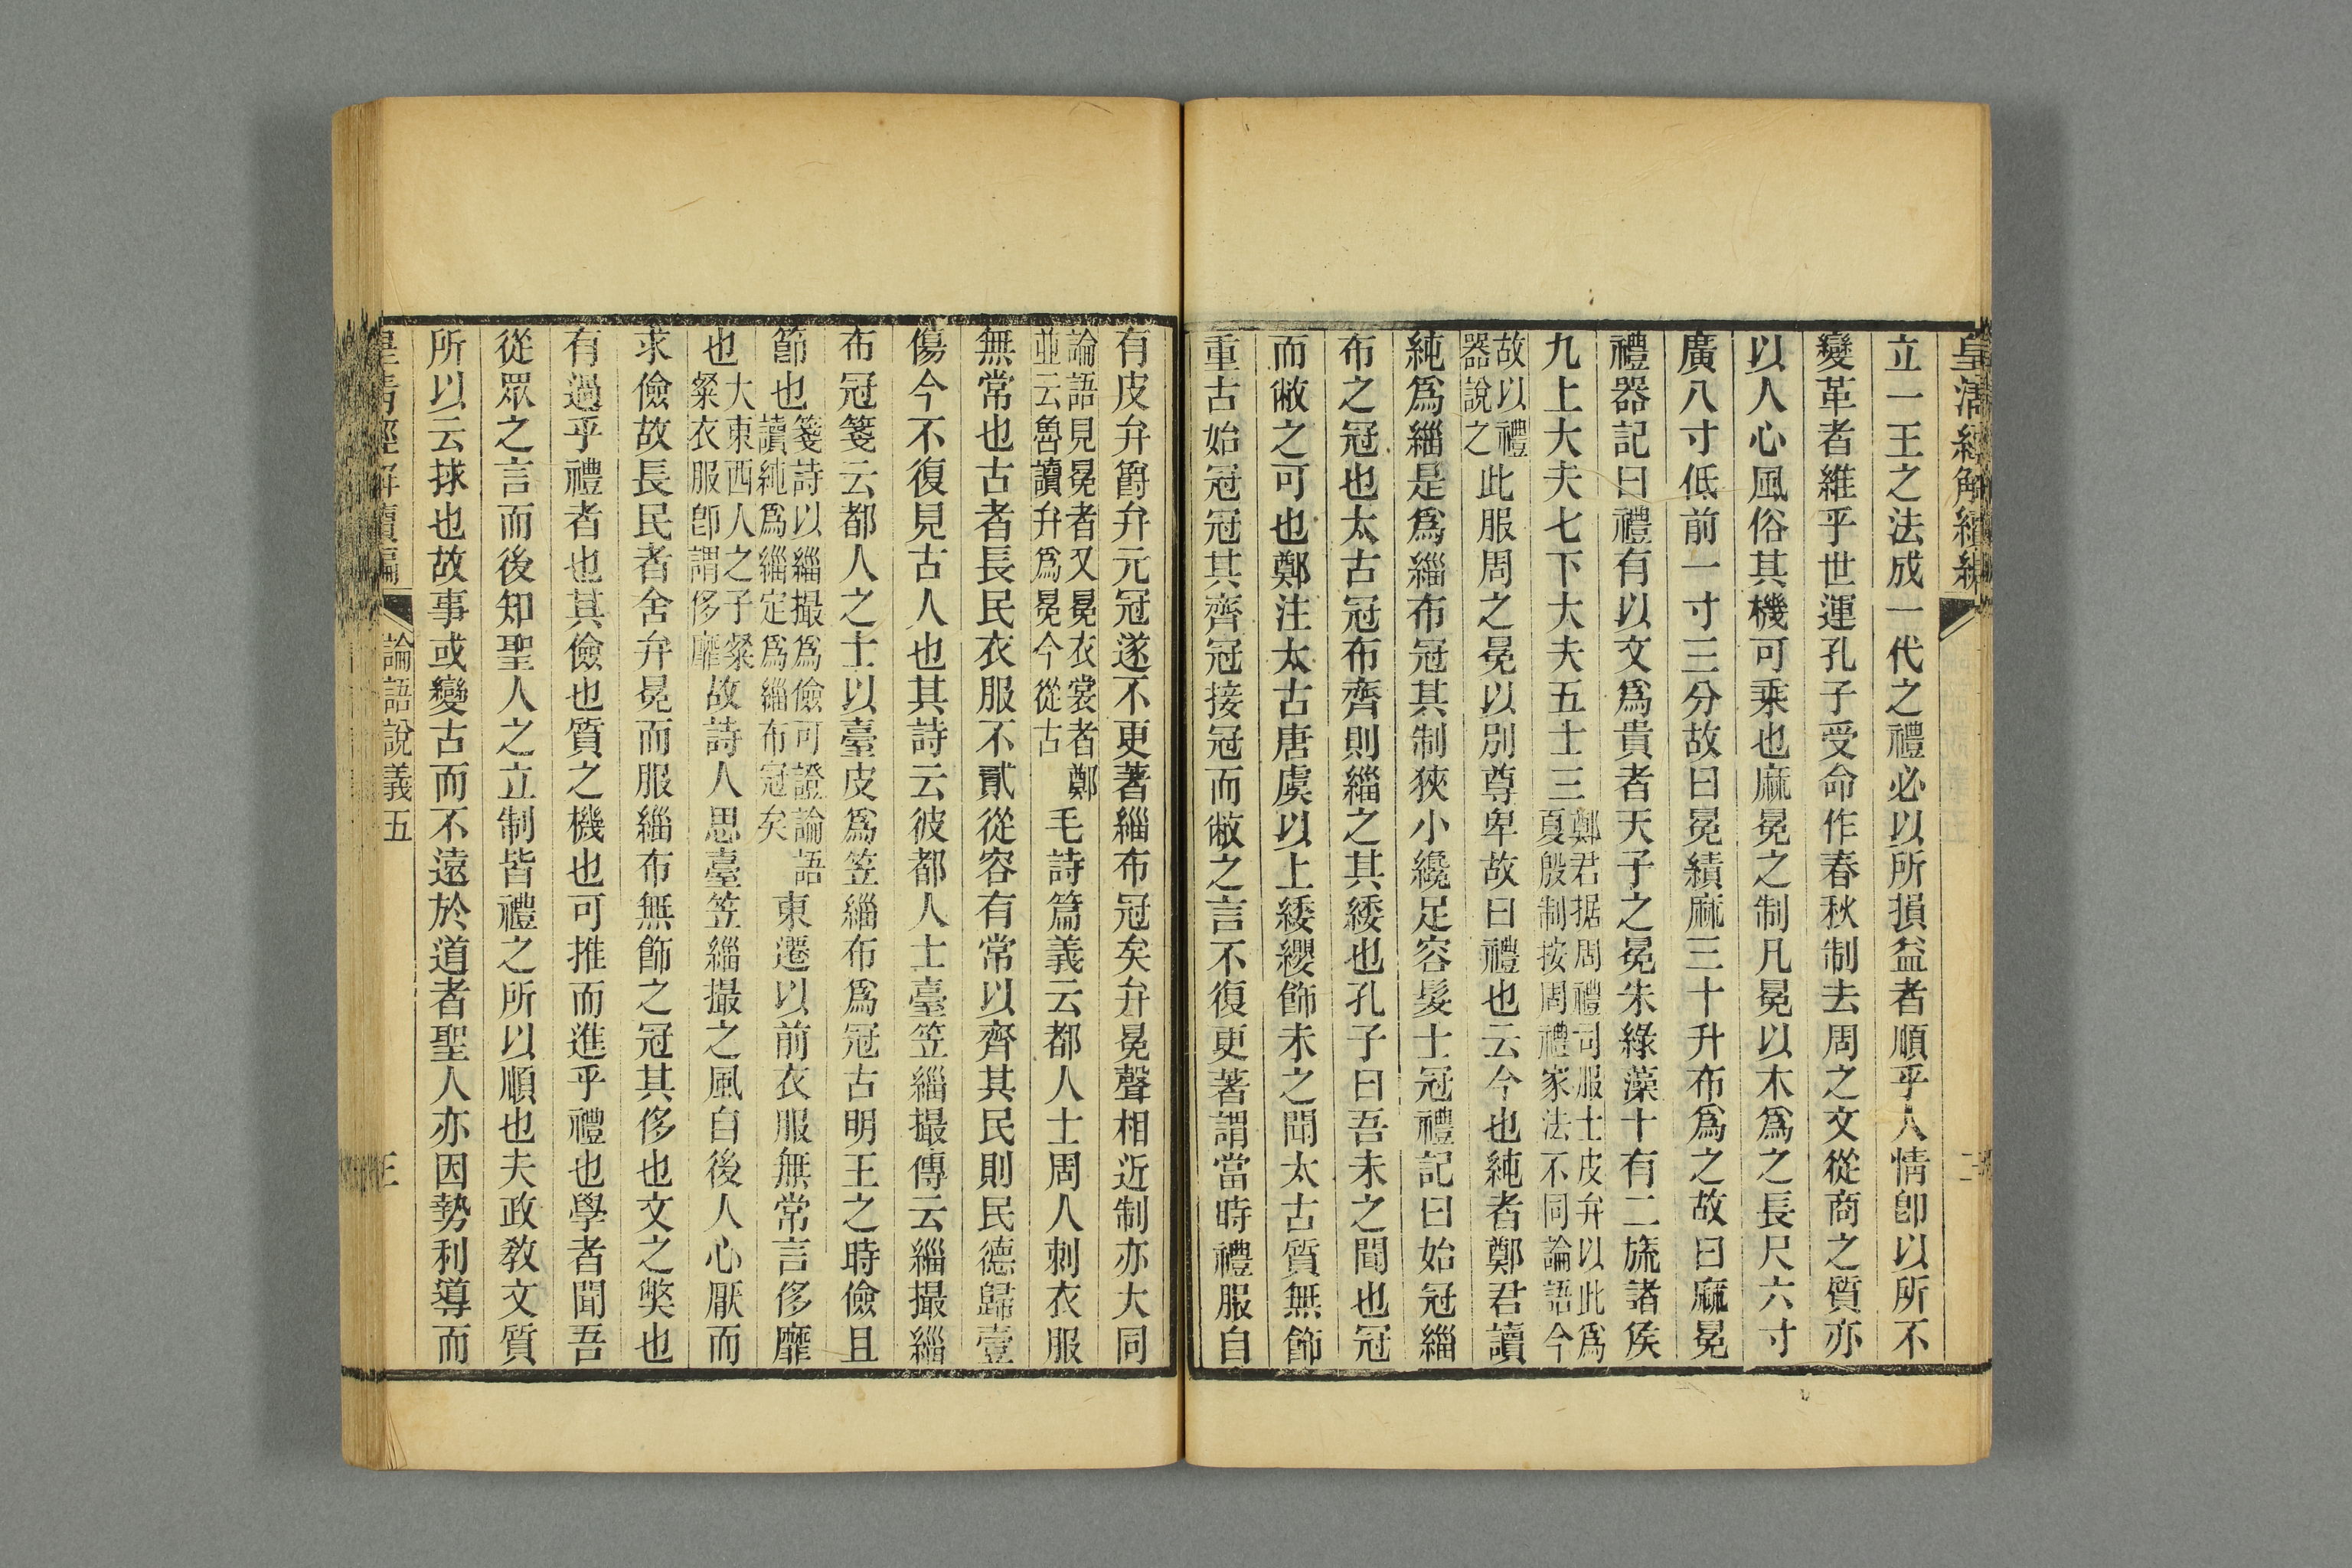 皇清經解續編
二
立一王之法成一代之禮必以所損益者順乎人情卽以所不
變革者維乎世運孔子受命作春秋制去周之文從商之質亦
以人心風俗其機可乘也麻冕之制凡冕以木爲之長尺六寸
廣八寸低前一寸三分故曰冕績麻三十升布爲之故曰麻冕
禮器記曰禮有以文爲貴者天子之冕朱綠藻十有二旒諸侯
九上大夫七下大夫五士三鄭君据周禮司服士皮弁以此爲夏殷制按周禮家法不同論語今
故以禮器說之此服周之冕以別尊卑故曰禮也云今也純者鄭君讀
純爲緇是爲緇布冠其制狹小纔足容髮士冠禮記曰始冠緇
布之冠也太古冠布齊則緇之其緌也孔子曰吾未之聞也冠
而敝之可也鄭注太古唐虞以上緌纓飾未之聞太古質無飾
重古始冠冠其齊冠接冠而敝之言不復更著謂當時禮服自
有皮弁爵弁元冠遂不更著緇布冠矣弁冕聲相近制亦大同
論語見冕者又冕衣裳者鄭並云魯讀弁爲冕今從古毛詩篇義云都人士周人刺衣服
無常也古者長民衣服不貳從容有常以齊其民則民德歸壹
傷今不復見古人也其詩云彼都人士臺笠緇撮傳云緇撮緇
布冠箋云都人之士以臺皮爲笠緇布爲冠古明王之時儉且
節也箋詩以緇撮爲儉可證論語讀純爲緇定爲緇布冠矣東遷以前衣服無常言侈靡
也大東西人之子粲粲衣服卽謂侈靡故詩人思臺笠緇撮之風自後人心厭而
求儉故長民者舍弁冕而服緇布無飾之冠其侈也文之獘也
有過乎禮者也其儉也質之機也可推而進乎禮也學者聞吾
從眾之言而後知聖人之立制皆禮之所以順也夫政敎文質
所以云捄也故事或變古而不遠於道者聖人亦因勢利導而
皇清經解續編
論語說義五
三